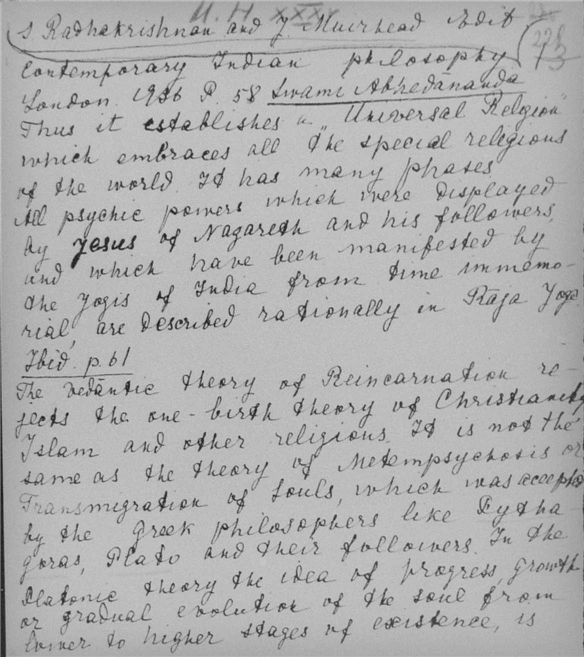 И.Н. XXXV
S. Radhakrishnan and J. Muirhead Edit
Contemporary Indian philosophy
London 1936 P. 58 Swami Abhedānanda
Thus it establishes a "Universal Religion"
which embraces all the special religious
of the world. It has many phases
All psychic powers which were displayed
by Jesus of Nagareth and his followers,
and which have been manifested by
the Yogis of India from time immemo-
rial, are described rationally in Rāja Yoga
Ibid. p. 61
The Vedāntic theory of Reincarnation re-
jects the one-birth theory of Christianity
Islam and other religious. It is not the
same as the theory of Metempsychosis or
Transmigration of Souls, which was accepted
by the Greek philosophers like Pytha-
goras, Plato and their followers. In the
Platonic theory the idea of progress, growth
or gradual evolution of the soul from
lower to higher stages of existence, is